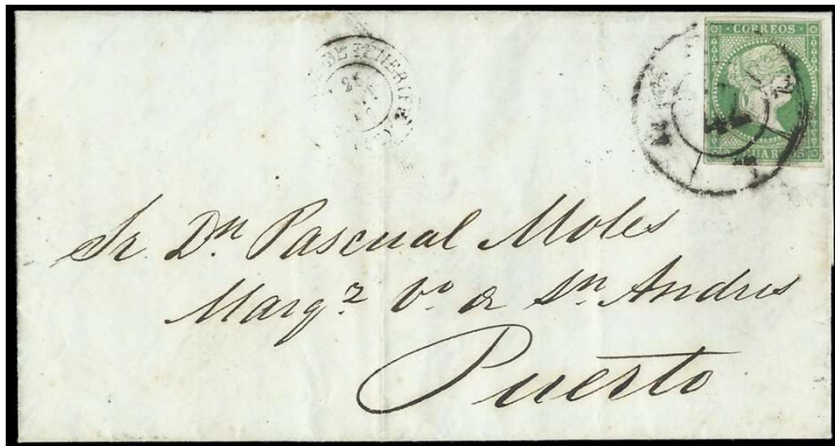 CORREOS
DE TENERIFE
CUARTOS
Sr. Dn Pascual Moles
Margz Vo. de Sn. Andres
Puerto